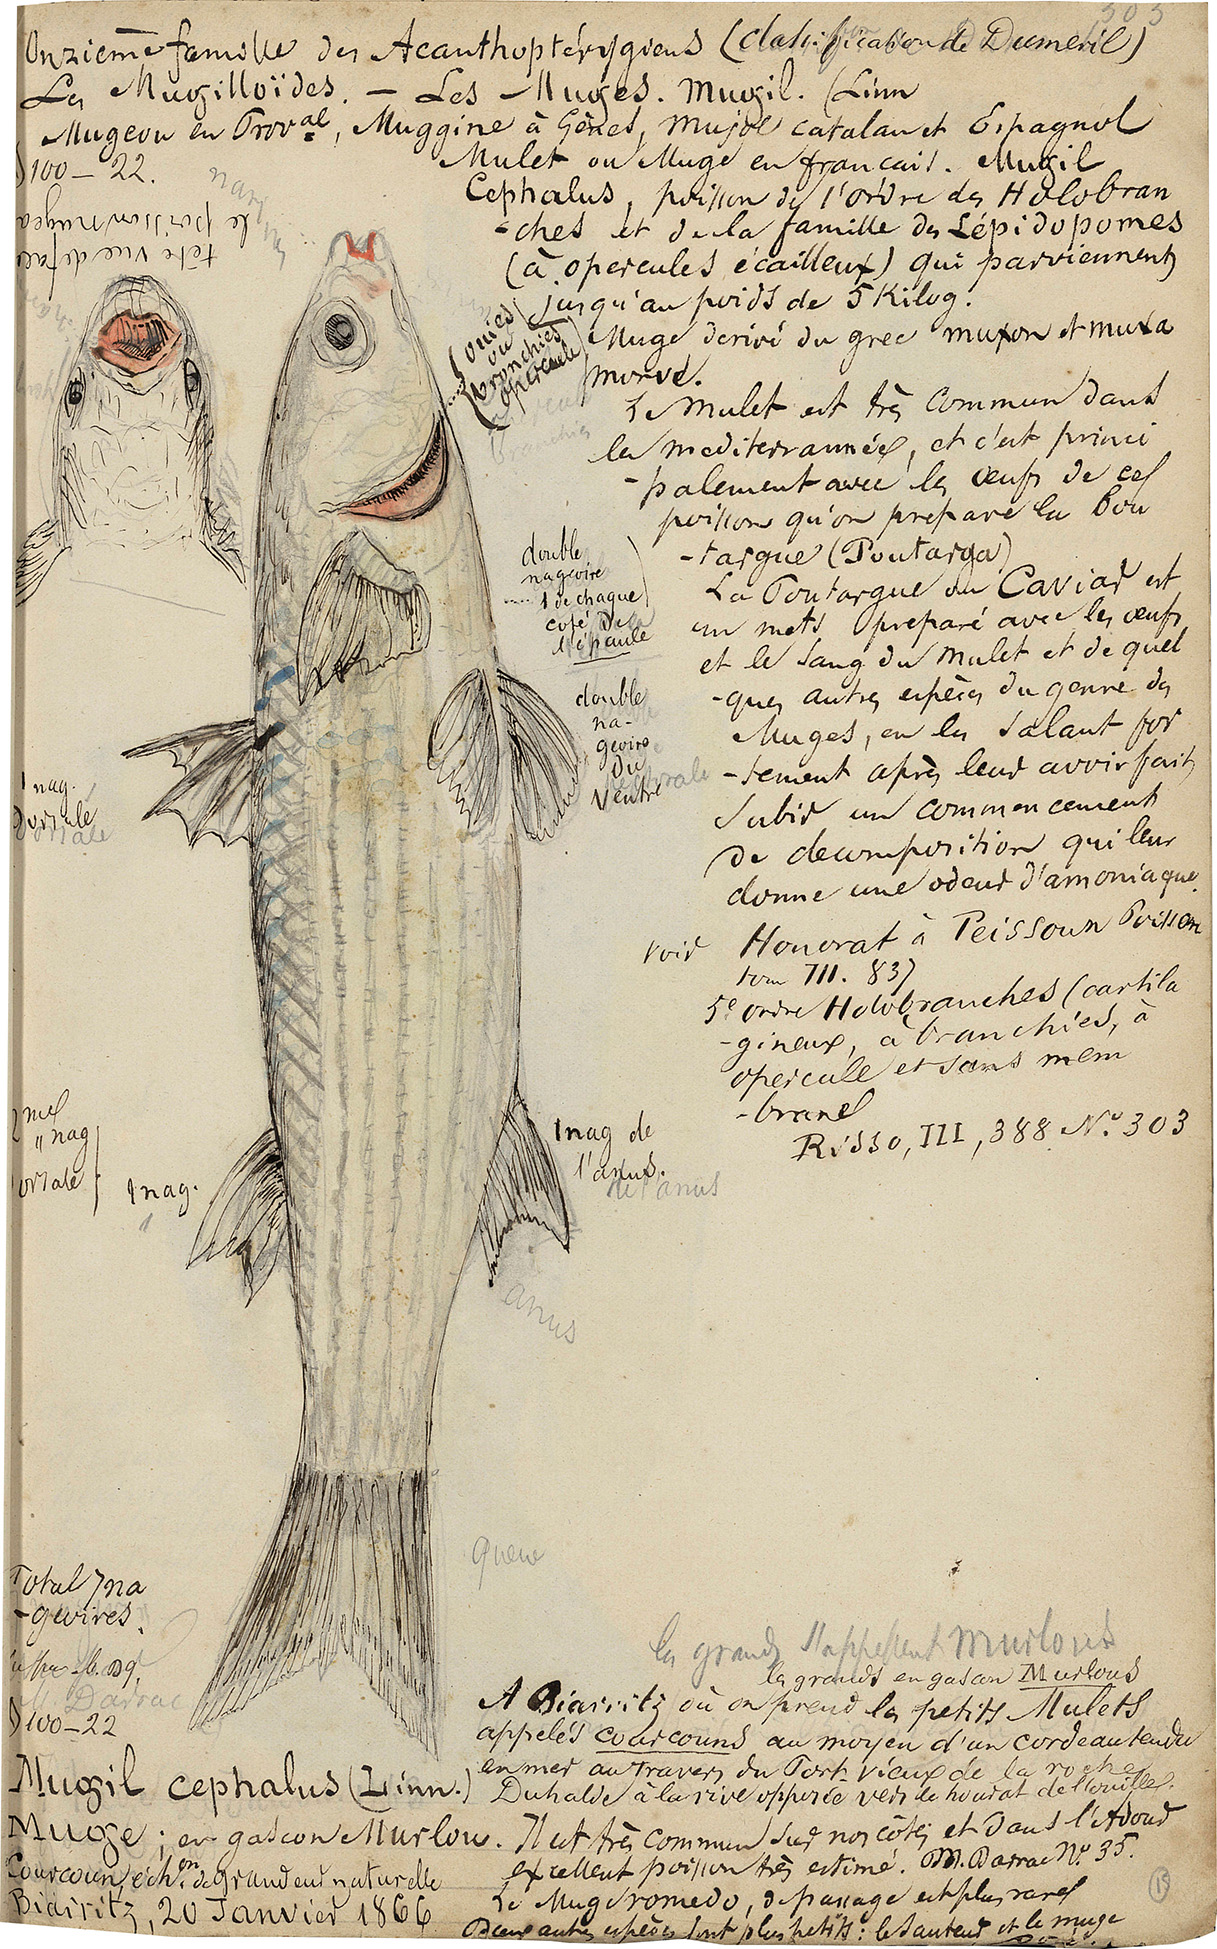 303
Onzième famille des Acanthoptérygiens (classification de Dumeril)
Les Mugilloïdes. — Les Muges. Mugil. (Linn
Mugeou en Prov.al, Muggine à Gênes, mujol catalan et Espagnol
Mulet ou Muge en francais. Mugil
Cephalus, poisson de l'ordre des Holobran
-ches et de la famille des Lépidopomes
(à opercules écailleux) qui parviennent
jusqu'au poids de 5 Kilog.
Muge derivé du grec muxon et muxa
morve.
Le mulet est très commun dans
la mediterrannée, et c'est princi
-palement avec les œufs de ces
poisson qu'on prepare la Bou
-targue (Poutarga)
La Poutargue ou Caviar est
un mets preparé avec les œufs
et le sang du mulet et de quel
-ques autres espèces du genre des
Muges, en les salant for
-tement après leur avoir fait
subir un commencement
de decomposition qui leur
donne une odeur d'amoniaque.
voir Honorat à Peissoun Poisson
tom III. 837
5e ordre Holobranches (cartila
-gineux, à branchies, à
opercule et sans mem
-brane
Risso, III, 388 No. 303
100 — 22.
narines
le poisson nugea
tête vue de face
ouies
ou
bronchies
opercule
branchies
double
nageoire
1 de chaque
coté de
l'épaule
double
na-
geoire
du
ventre
1 nag.
dorsale
2me
" nag
orsale
1 nag.
1 nag de
l'anus.
de l'anus
anus
queue
Total 7 na
-geoires.
M. Darrac
100—22
Mugil cephalus (Linn.)
Muge; en gascon Murlou.
Courcoun, échon. de grandeur naturelle
Biarritz, 20 Janvier 1866
les grands s'appellent Murlous
les grands en gascon Murlous
A Biarritz où on prend les petits Mulets
appelés courcouns au moyen d'un cordeau tendu
en mer au travers du Port-vieux de la roche
Duhalde à la rive opposée vers le hourat
Il est très commun sur nos côtes et dans l'Adour
excellent poisson très estimé. M. Darrac No. 35.
Le Muge romedo, de passage est plus rare
Deux autres espèces sont plus petits: le sauteur et le muge
15